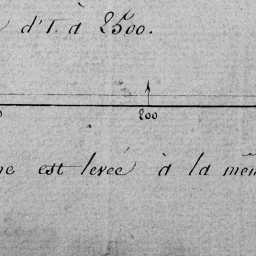 d'1. à 2500.
200
est levée à la mêm